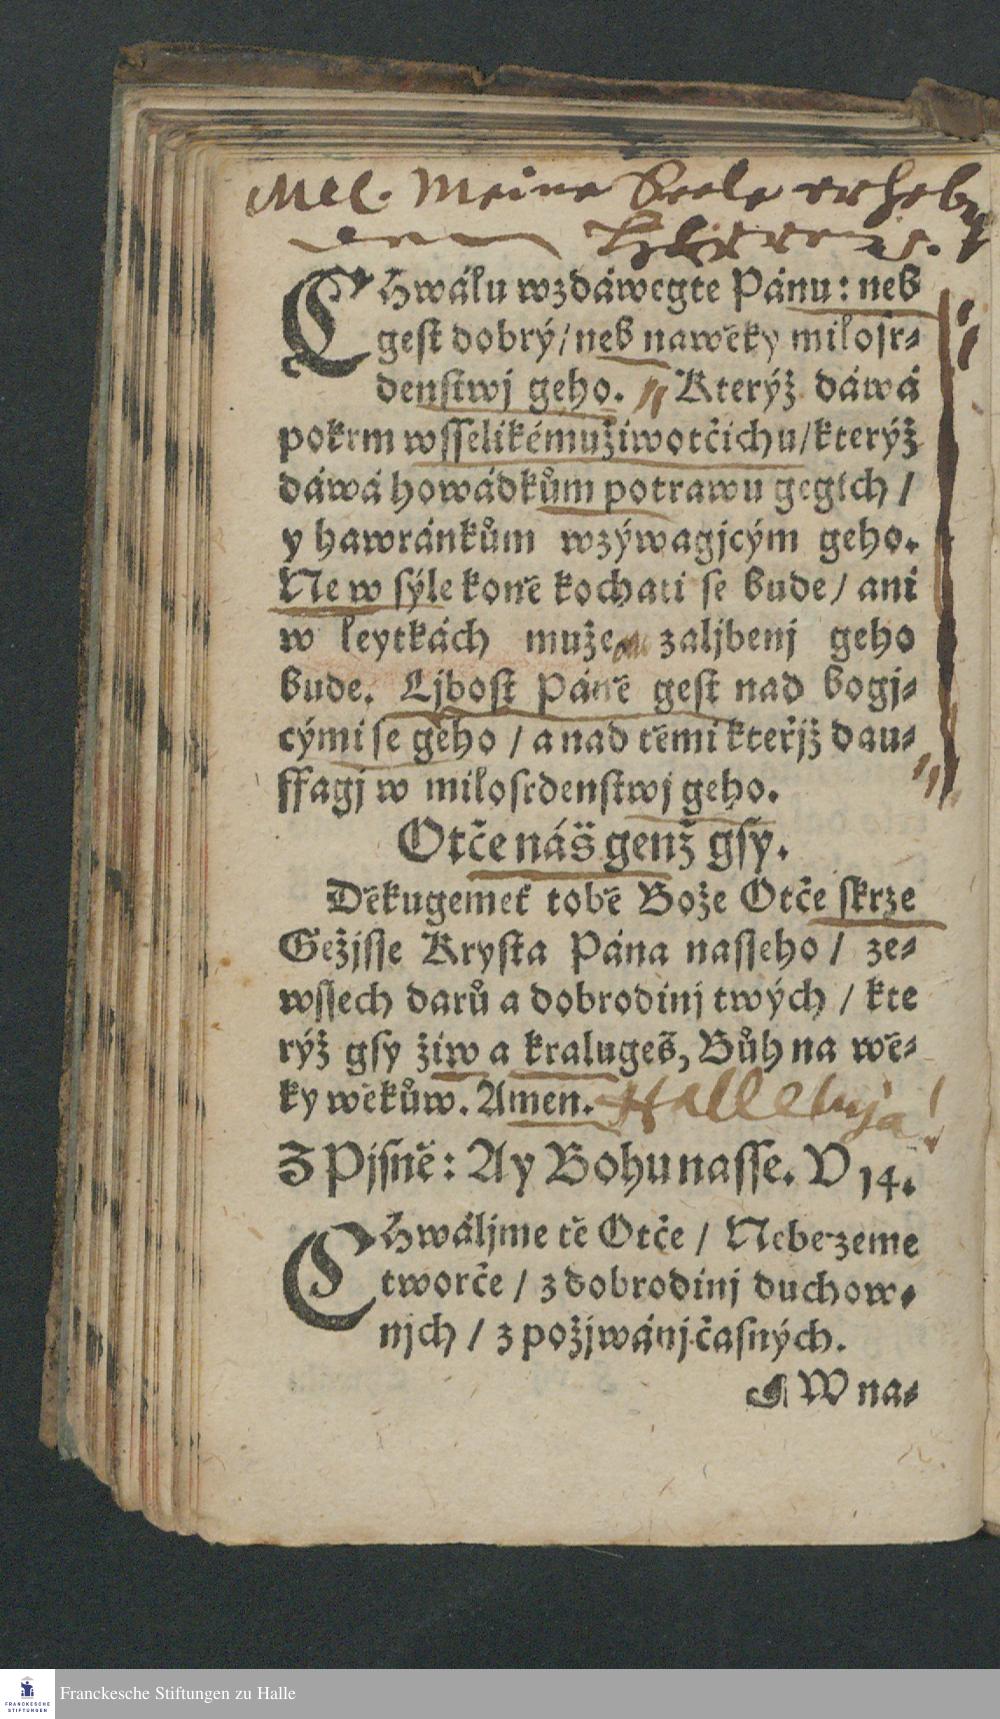 Mel. Meine Seele erheb
den HErren ꝛc.
Chwálu wzdáwegte Pánu: neb
gest dobrý/ neb nawěky milosr⸗
denstwj geho. Kterýž dáwá
pokrm wsselikémužiwotčichu/kterýž
dáwá howádkům potrawu gegich /
y hawránkům wzýwagjcým geho.
Ne w sýle koně kochati se bude/ ani
w leytkách muže zaljbenj geho
bude. Ljbost Páně gest nad bogj⸗
cými se geho / a nad těmi kteřjž dau⸗
ffagj w milosrdenstwj geho.
Otče náš genž gsy.
Děkugemeť tobě Bože Otče skrze
Gežjsse Krysta Pána nasseho / ze⸗
wssech darů a dobrodinj twých / kte
rýž gsy žiw a kralugeš, Bůh na wě⸗
ky wěkůw. Amen. Halleluja!
Z Pjsně: Ay Bohu nasse. V 14.
Chwáljme tě Otče / Nebe zeme
tworče / z dobrodinj duchow⸗
njch / z požjwánj časných.
¶ W na⸗
Franckesche Stiftungen zu Halle
FRANCKESCHE
STIFTUNGEN